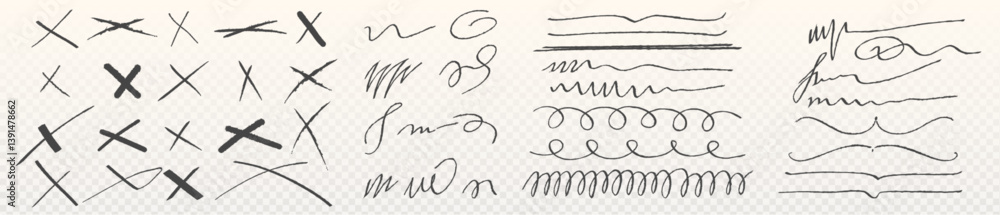 Adobe Stock | #1391478662